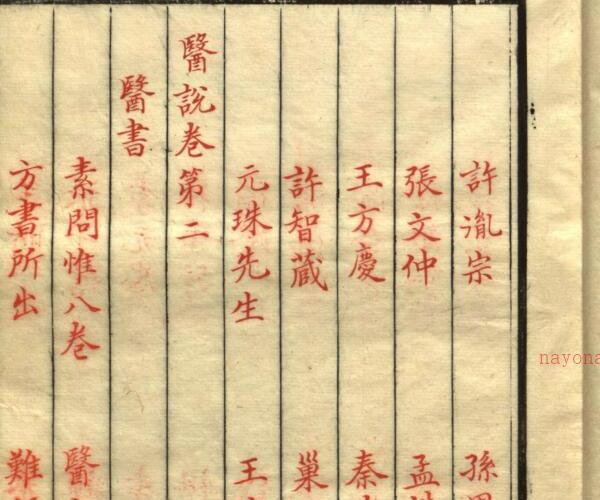 許胤宗 孫
張文仲 孟
王方慶 秦
許智蔵 巢
元珠先生 王
醫說卷第二
醫書
素問惟八卷 醫
方書所出 難
nayona